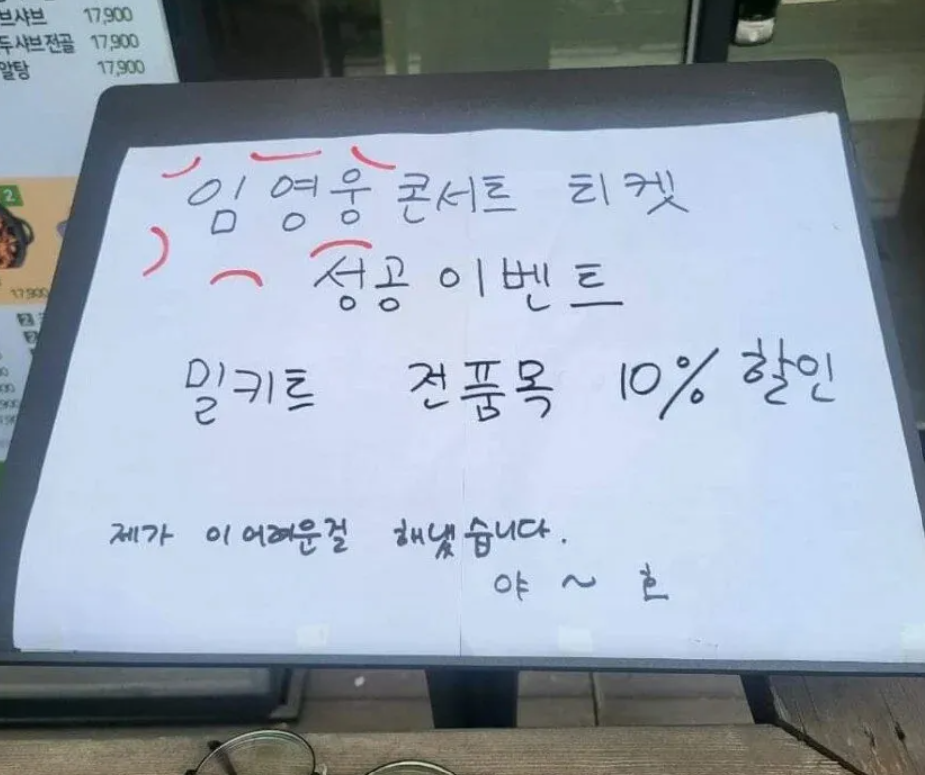 브샤브 17,900
두샤브전골 17,900
알탕 17,900
2
17,900
임영웅 콘서트 티켓
성공 이벤트
밀키트 전품목 10% 할인
제가 이 어려운걸 해냈습니다.
야 ~ 호